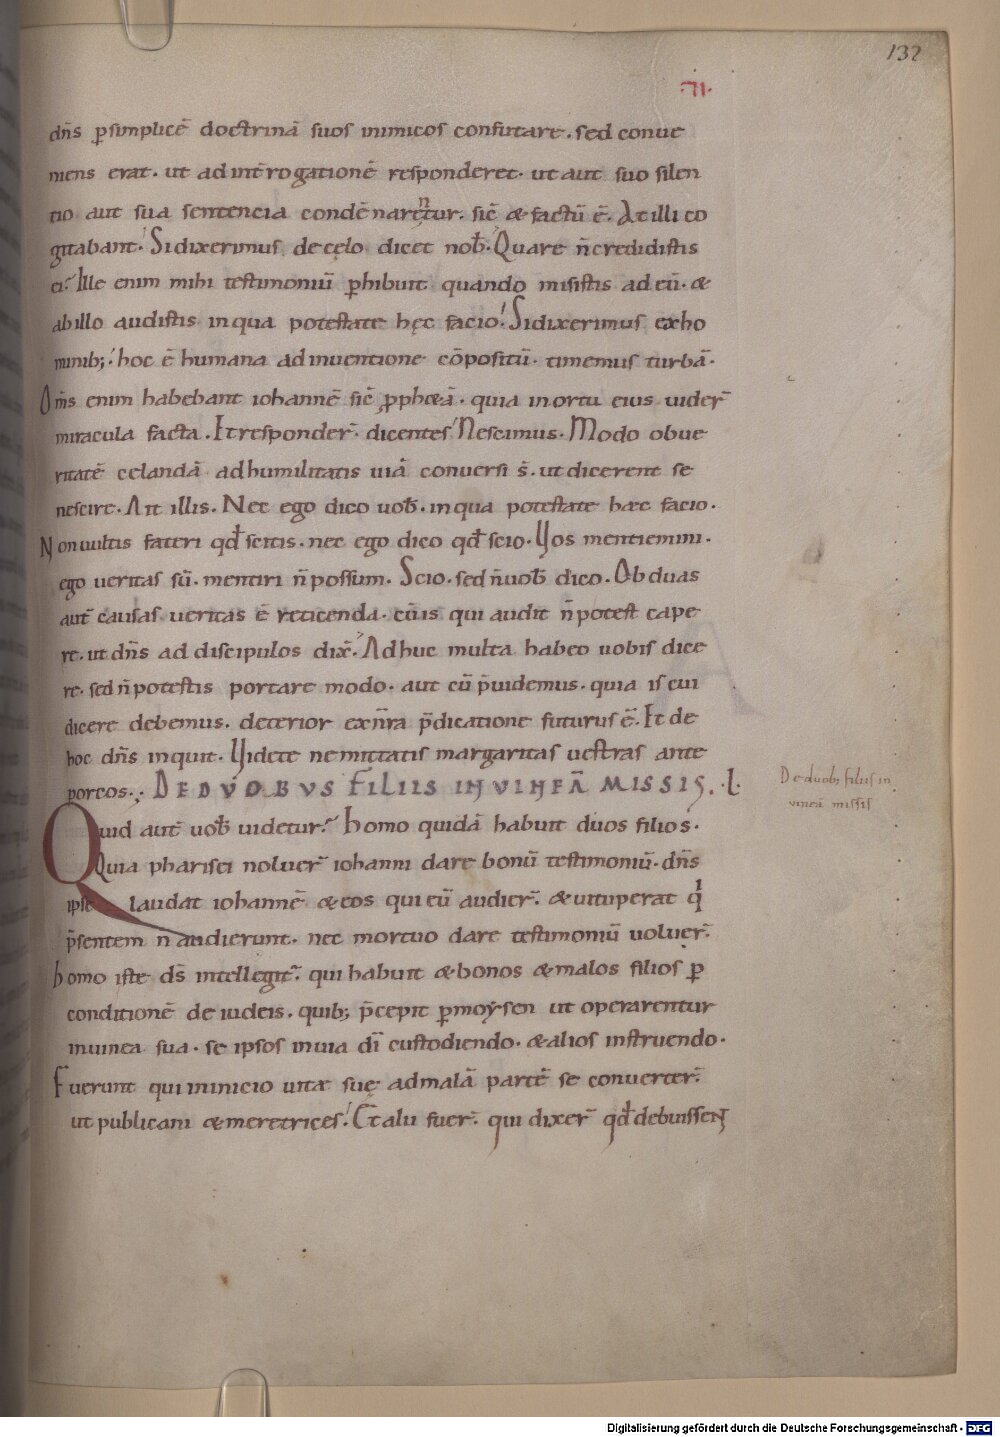 132
·VI·
dn̄s p̱simplicē doctrinā suos inimicos confutare. sed conue
niens erat. ut ad int̄rogationē responderet. ut aut suo silen
tio aut sua sentencia condēnarentur. sic̄ & factū ē. At illi co
gitabant. Si dixerimus de cęlo dicet nob̄. Quare n̄ credidistis
ei? Ille enim mihi testimoniū p̱hibuit quando misistis ad eū. &
ab illo audistis in qua potestate hęc facio. Si dixerimus ex ho
minib; hoc ē humana adinuentione cōpositū. timemus turbā.
Om̄s enim habebant iohannē sic̄ ꝓph&ā. quia in ortu eius uider̄
miracula facta. Et responder̄. dicentes Nescimus. Modo ob ue
ritatē celandā ad humilitatis uiā conuersi s̄. ut dicerent se
nescire. Ait illis. Nec ego dico uob̄. in qua potestate haec facio.
Non uultis fateri qđ scitis. nec ego dico qđ scio. Vos mentiemini.
ego ueritas sū. mentiri n̄ possum. Scio. sed n̄ uob̄ dico. Ob duas
aut̄ causas ueritas ē reticenda. cū is qui audit n̄ potest cape
re. ut dn̄s ad discipulos dix̄. Adhuc multa habeo uobis dice
re. sed n̄ potestis portare modo. aut cū p̄uidemus. quia is cui
dicere debemus. deterior ex nr̄a p̄dicatione futurus ē. Et de
hoc dn̄s inquit. Videte ne mittatis margaritas uestras ante
porcos.; DE DVOBVS FILIIS IN VINEĀ MISSIS. .L.
De duob; filiis in
uineā missis
Quid aut̄ uob̄ uidetur? Homo quidā habuit duos filios.
Quia pharisei noluer̄ iohanni dare bonū testimoniū. dn̄s
ipse laudat iohannē & eos qui eū audier̄. & uituperat qͥ
p̄sentem n̄ audierunt. nec mortuo dare testimoniū uoluer̄.
Homo iste ds̄ intellegit̄. qui habuit & bonos & malos filios p̱
conditionē de iudeis. quib; p̄cepit p̱ moysen ut operarentur
in uinea sua. se ipsos in uia dī custodiendo. & alios instruendo.
Fuerunt qui in inicio uitae suę ad malā partē se conuerter̄.
ut publicani & meretrices. Et alii fuer̄. qui dixer̄ qđ debuissent
Digitalisierung gefördert durch die Deutsche Forschungsgemeinschaft - DFG